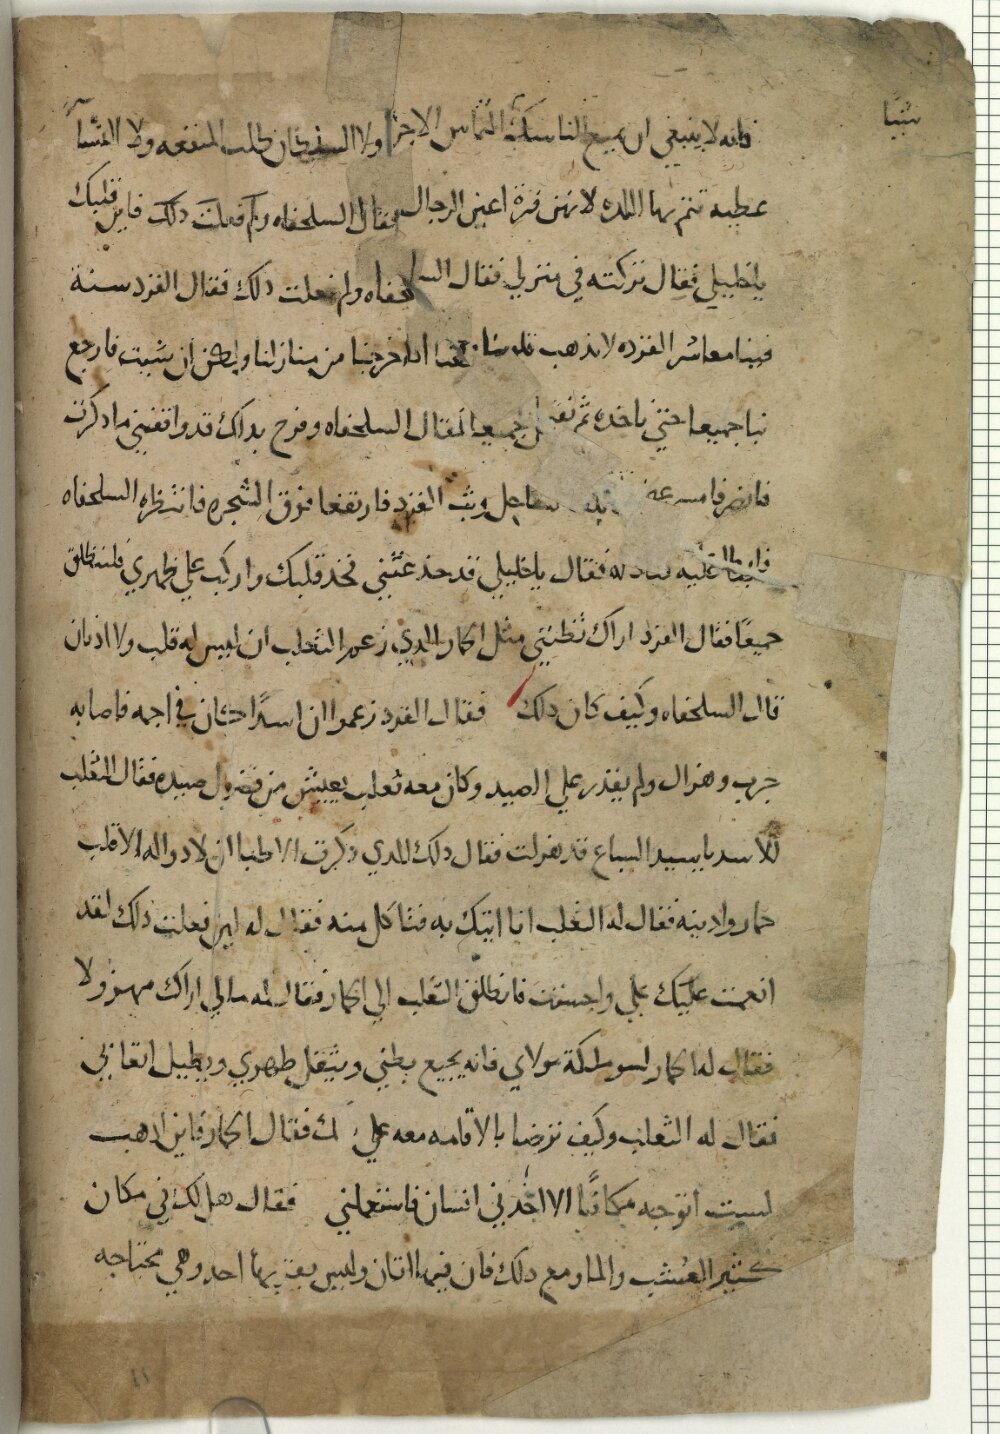 شيئا
فانه لا ينبغي ان يمنع الناسك التماس الاجر ولا السلطان طلب المنفعه ولا النسا
عطيه تتم بها اللده لانهن قرة اعين الرجال فقال السلحفاه ولم فعلت دلك فاين قلبك
يا خليلي فقال تركته في منزلي فقال السلحفاه ولم فعلت دلك فقال القرد سنة
فينا معاشر القرده لا تذهب قلوبنا معنا ادا خرجنا من منازلنا ولكن ان شيت فارجع
بنا جميعا حتي ناخده ثم جميعا فقال السلحفاه وفرح بداك قد وافقني ما دكرت
فانصرفا مسرعين الساحل وثب القرد فارتفعا فوق الشجره فانتظره السلحفاه
فابطا عليه فناداه فقال يا خليلي قد حذعتني فخد قلبك واركب علي ظهري فلننطلق
جميعًا فقال القرد اراك تظنني مثل الحمار الدي زعم الثعلب ان ليس له قلب ولا ادنان
قال السلحفاه وكيف كان دلك فقال القرد زعموا ان اسدًا كان في اجمه فاصابه
جرب وهزال ولم يقدر علي الصيد وكان معه ثعلب يعيش من فضول صيده فقال الثعلب
للاسد يا سيد السباع قد هزلت فقال دلك للدي دكرت الاطبا ان لا دوا له الا قلب
حمار وادنيه فقال له الثعلب انا اتيك به فتاكل منه فقال له لين فعلت ذلك لقد
انعمت عليك علي واحسنت فانطلق الثعلب الي الحمار فقال له مالي اراك مهزولا
فقال له الحمار لسو ملكة مولاي فانه يجيع بطني ويثقل ظهري ويطيل اتعابي
فقال له الثعلب وكيف ترضا بالاقامه معه علي دلك فقال الحمار فاين ادهب
لست اتوجه مكانًا الا اخدني انسان فاستعملني فقال هل لك في مكان
كثير العشب والما ومع دلك فان فيها اتان وليس يقربها احد وهي محتاجه